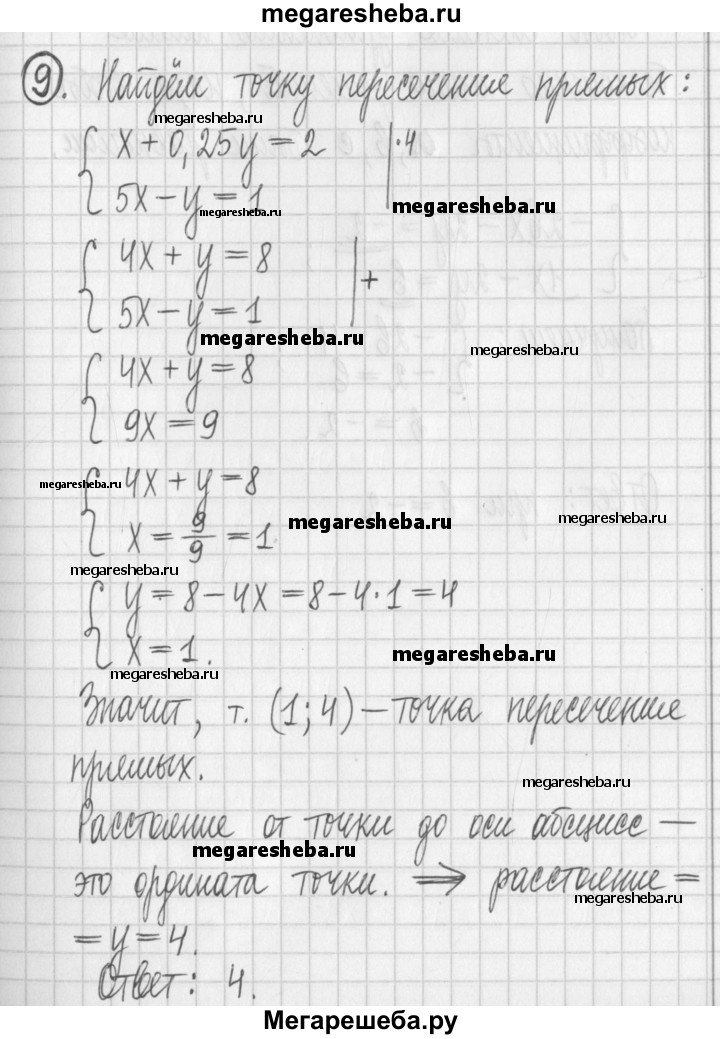 megaresheba.ru
9. Найдём точку пересечение прямых:
megaresheba.ru
x + 0,25y = 2 | ·4
5x − y = 1
megaresheba.ru
megaresheba.ru
4x + y = 8
5x − y = 1 | +
megaresheba.ru
megaresheba.ru
4x + y = 8
9x = 9
4x + y = 8
megaresheba.ru
x = 9/9 = 1.
megaresheba.ru
megaresheba.ru
megaresheba.ru
y = 8 − 4x = 8 − 4·1 = 4
x = 1.
megaresheba.ru
megaresheba.ru
Значит, т. (1; 4) — точка пересечение
прямых.
megaresheba.ru
Расстояние от точки до оси абсцисс —
megaresheba.ru
это ордината точки. ⟹ расстояние =
megaresheba.ru
= y = 4.
Ответ: 4.
Мегарешеба.ру